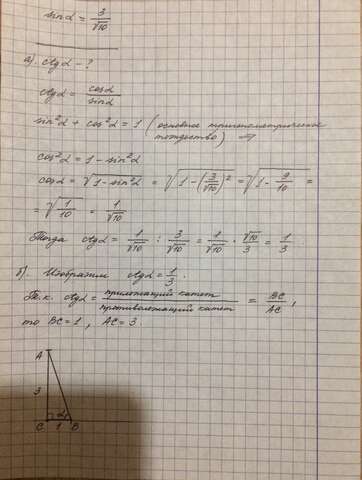 sin α = 3/√10
а) ctg α - ?
ctg α = cos α / sin α
sin² α + cos² α = 1 (основное тригонометрическое
тождество) ⇒
cos² α = 1 - sin² α
cos α = √(1 - sin² α) = √(1 - (3/√10)²) = √(1 - 9/10) =
= √(1/10) = 1/√10
ctg α = 1/√10 : 3/√10 = 1/√10 · √10/3 = 1/3
ctg α = 1/3.
ctg α = прилежащий катет / противолежащий катет = BC/AC,
BC = 1, AC = 3
A
3
α
C 1 B